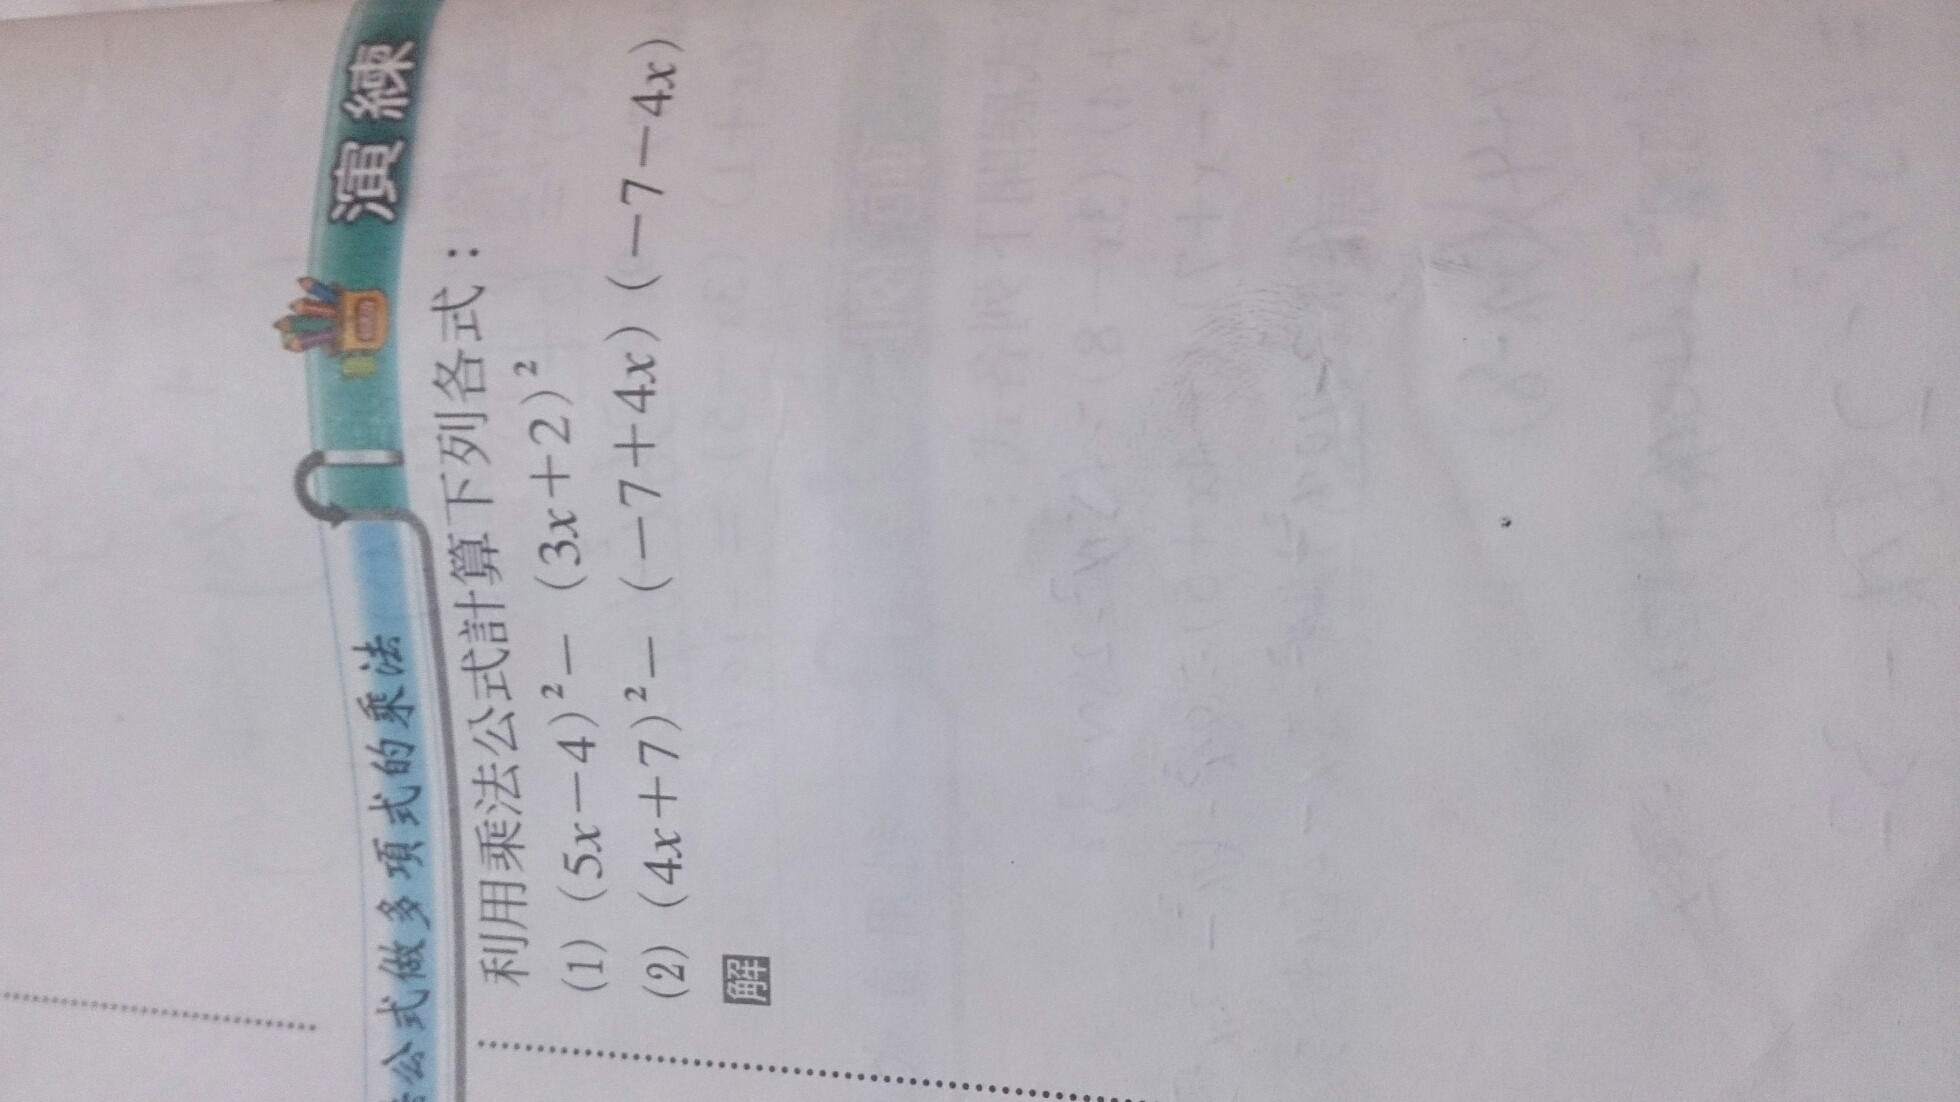 公式做多項式的乘法
演練
利用乘法公式計算下列各式：
(1) (5x－4)²－ (3x＋2)²
(2) (4x＋7)²－ (－7＋4x) (－7－4x)
解